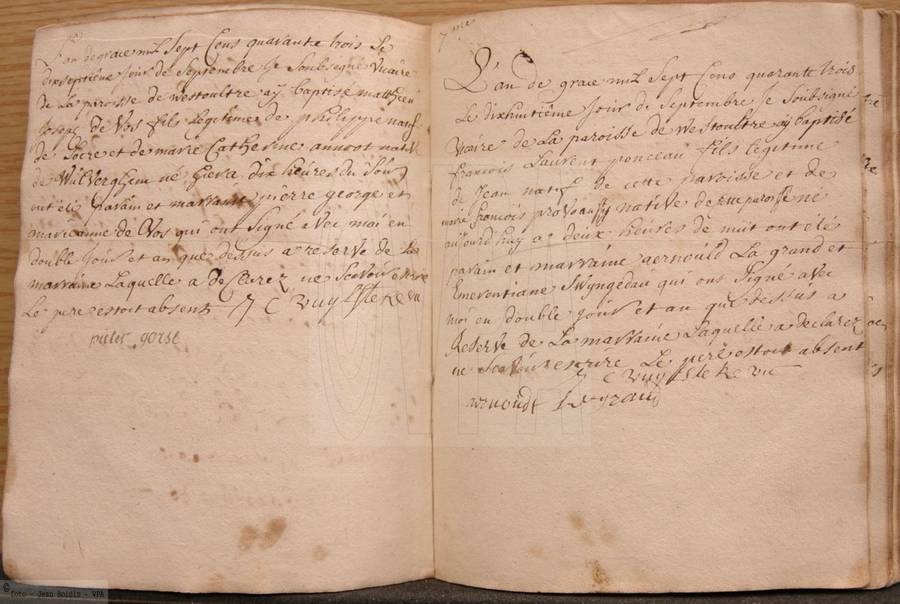 L'an de grace mil Sept Cens quarante trois Le
dixseptième Jour de Septembre Je Soubsigné vicaire
de La paroisse de westoultre aÿ baptisé matthieu
Joseph de Vos fils Legitime de philippe natif
de Locre et de marie Catherine annoot nativ
de Wulverghem né hier a dix heures du Soir
ont été parain et marraine pierre george et
marianne de Vos qui ont Signé avec moi en
double jour et an que dessus a reserve de La
marraine Laquelle a declarez ne scavoir escrire
Le pere estoit absent J C vuylstekevu
pieter gorse
7me
L'an de grace mil Sept Cens quarante trois
Le dixhuitième Jour de Septembre Je Soubsigné
vicaire de La paroisse de westoultre aÿ baptisé
francois Laurent ponceau fils legitime
de Jean natif de cette paroisse et de
marie francois native de paroisse né
aujourdhuy a deux heures de nuit ont été
parain et marraine aernould La grand et
Emerentiane Swyngedau qui ont Signé avec
moi en double jour et an que dessus a
Reserve de La marraine Laquelle a declarez
ne scavoir escrire Le pere estoit absent
J C vuylstekevu
arnoudt Legrand
© foto - Jean Boidin - VPA